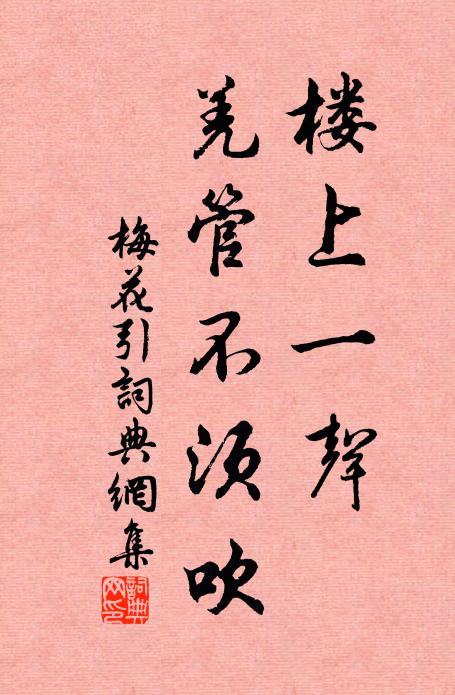 楼上一聲
羌管不须吹
梅花引詞典網集
詞典
网印